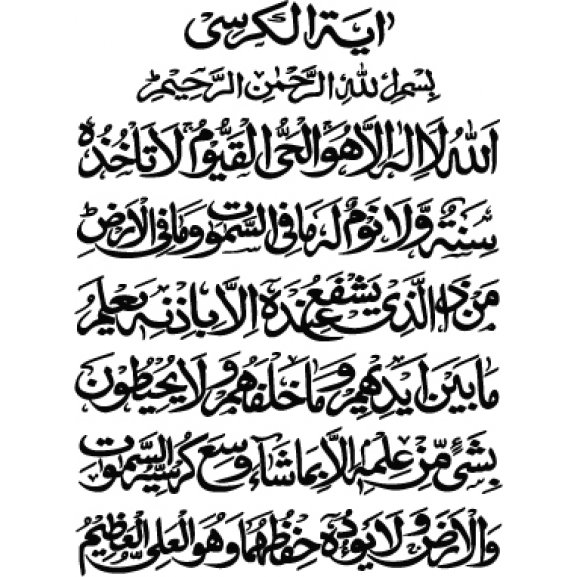 اٰیة الکرسی
بسم الله الرحمن الرحیم
اَللهُ لَا اِلٰهَ اِلَّا هُوَ الْحَیُّ الْقَیُّوْمُ لَا تَاْخُذُهٗ
سِنَةٌ وَّلَا نَوْمٌ لَهٗ مَا فِی السَّمٰوٰتِ وَمَا فِی الْاَرْضِ
مَنْ ذَا الَّذِیْ یَشْفَعُ عِنْدَهٗ اِلَّا بِاِذْنِهٖ یَعْلَمُ
مَا بَیْنَ اَیْدِیْهِمْ وَمَا خَلْفَهُمْ وَلَا یُحِیْطُوْنَ
بِشَیْءٍ مِّنْ عِلْمِهٖ اِلَّا بِمَا شَآءَ وَسِعَ کُرْسِیُّهُ السَّمٰوٰتِ
وَالْاَرْضَ وَلَا یَئُوْدُهٗ حِفْظُهُمَا وَهُوَ الْعَلِیُّ الْعَظِیْمُ